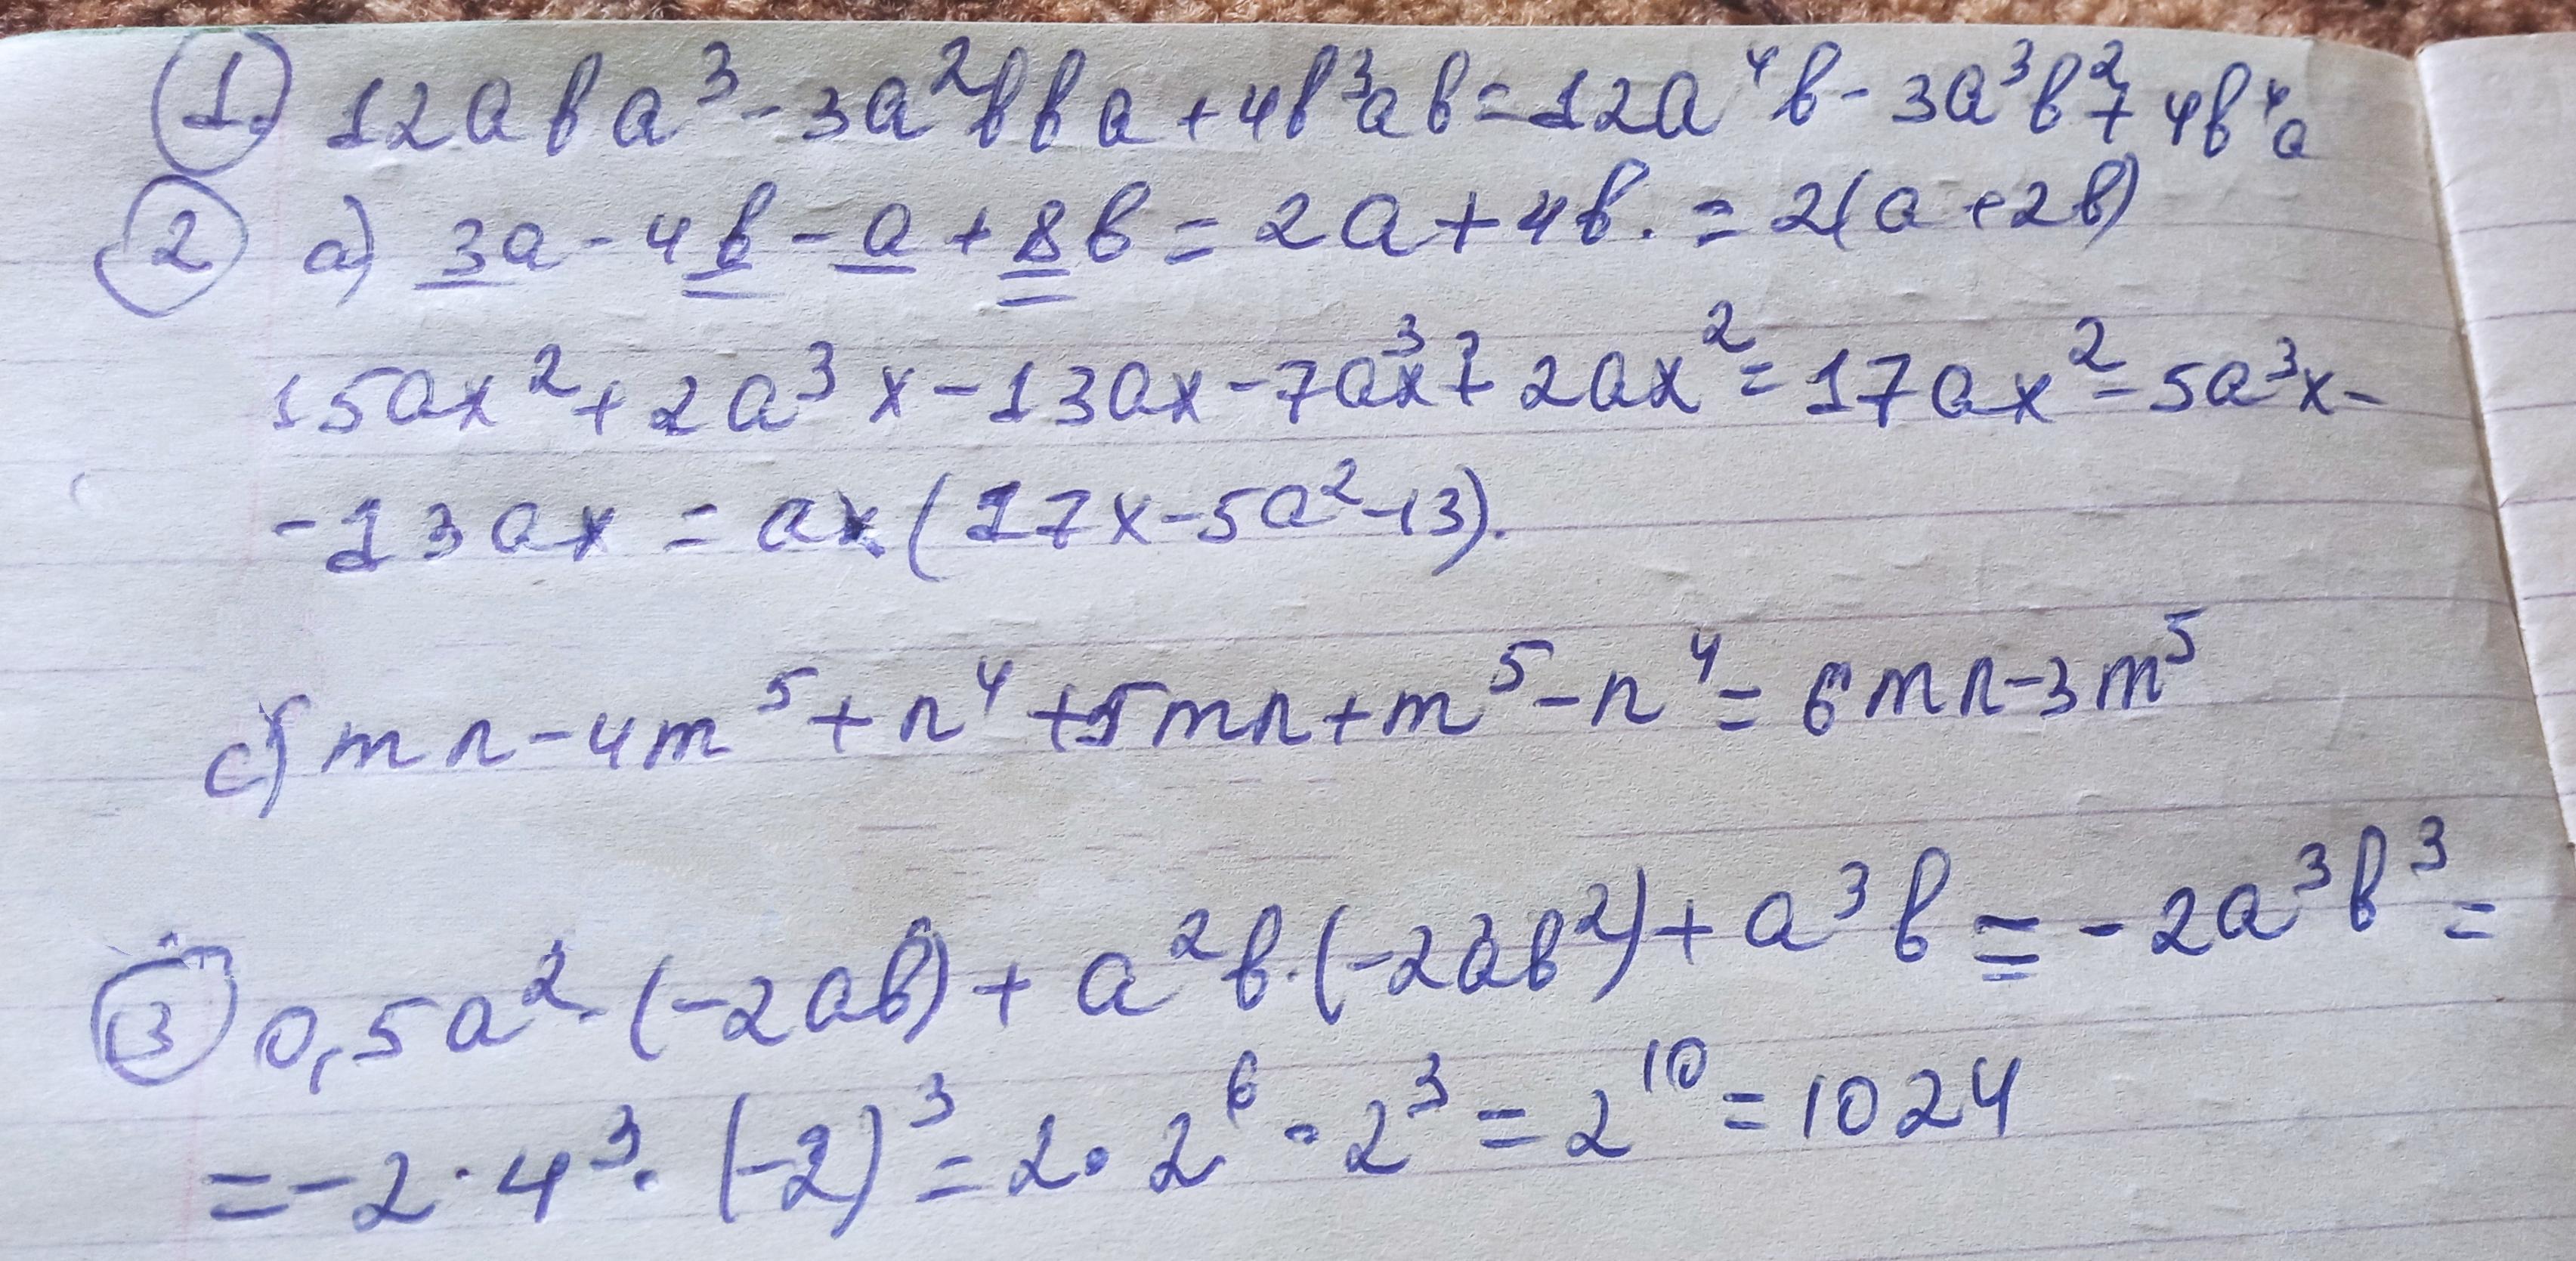 1. 12aba³ - 3a²bba + 4b³ab = 12a⁴b - 3a³b² + 4b⁴a
2 a) 3a - 4b - a + 8b = 2a + 4b. = 2(a + 2b)
15ax² + 2a³x - 13ax - 7a³x + 2ax² = 17ax² - 5a³x -
- 13ax = ax(17x - 5a² - 13).
c) mn - 4m⁵ + n⁴ + 5mn + m⁵ - n⁴ = 6mn - 3m⁵
3 0,5a² · (-2ab) + a²b · (-2ab²) + a³b = -2a³b³ =
= -2 · 4³ · (-2)³ = 2 · 2⁶ · 2³ = 2¹⁰ = 1024